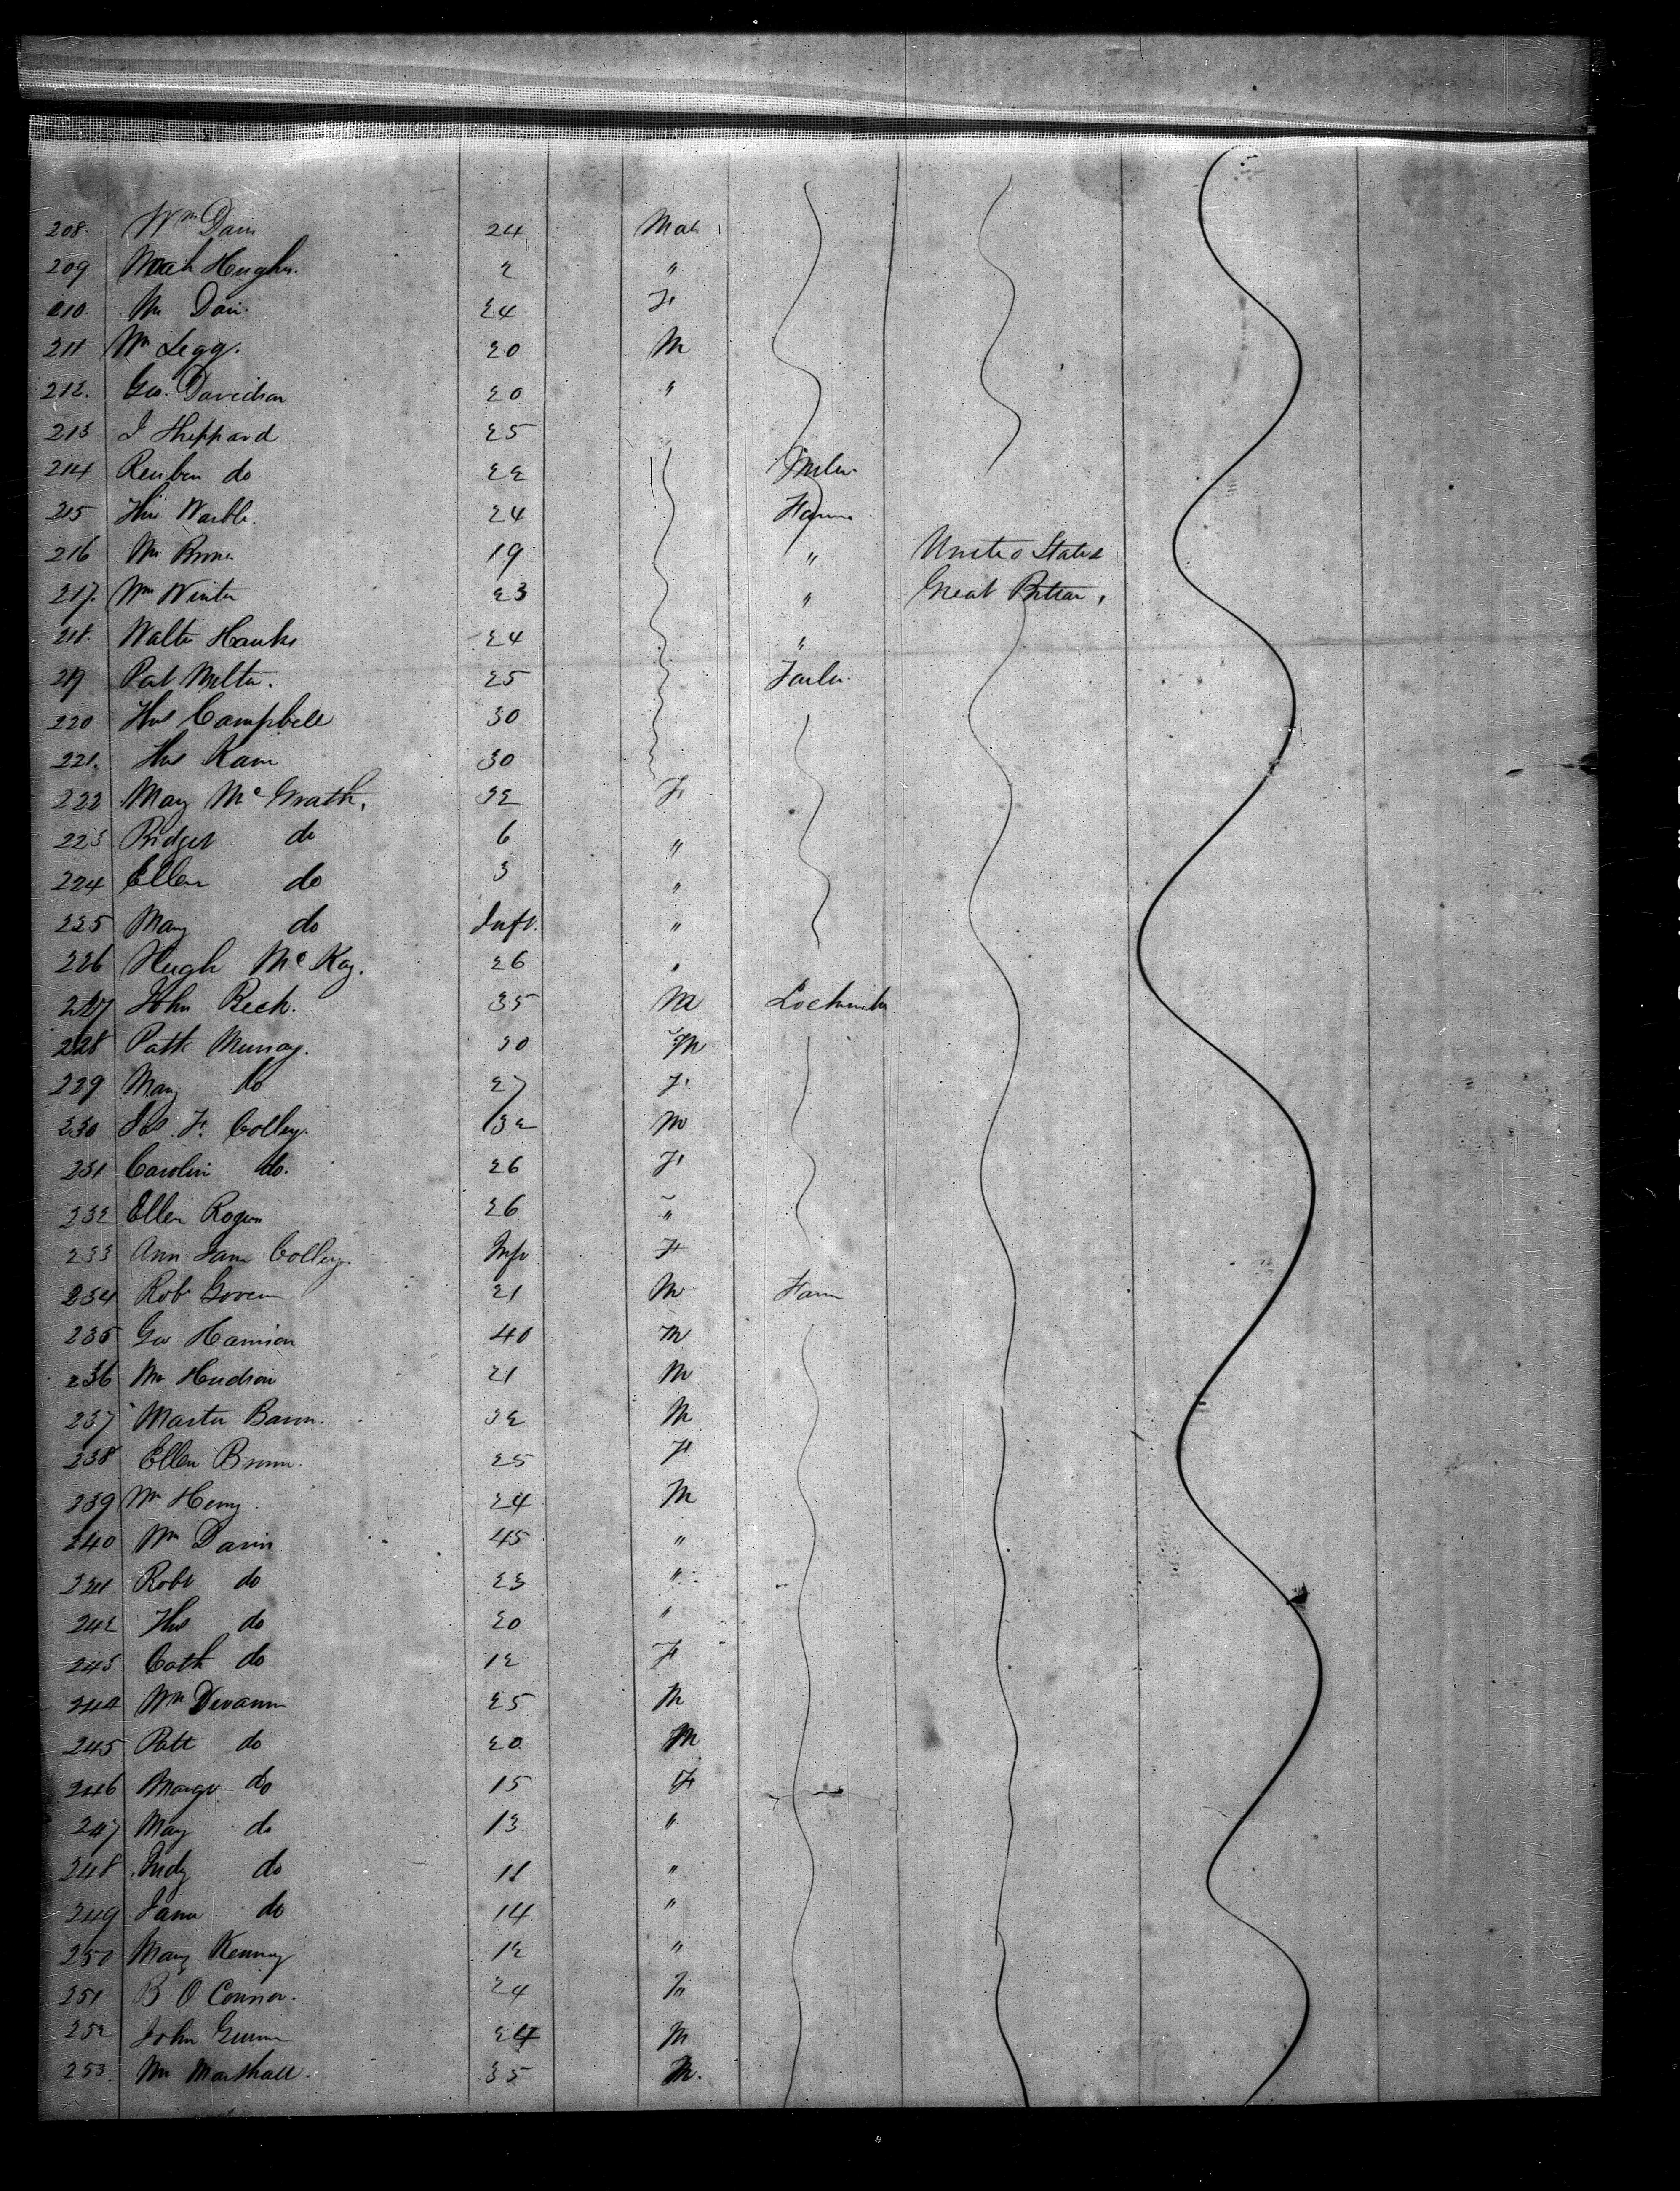 208. Wm Davi 24 Male
209 Noah Hughes. 2 "
210. Wm Davi. 24 F
211 Wm Legg. 20 M
212. Geo. Davidson 20 "
213 J Sheppard 25
214 Reuben do 22 Miler
215 24 Farmer
216 Wm Brown 19 " United States
217. Wm Winter 23 " Great Britain,
218. Walter Hanks 24 "
219 Pat Melter. 25
220 Thos Campbell 30
221. Thos Kane 30
222 Mary McGrath, 32 F
223 Bridget do 6 "
224 Ellen do 3 "
225 Mary do Inft. "
226 Hugh McKay. 26 "
227 John Beck. 35 M
228 Patk Murray. 30 M
229 Mary do 27 F
230 Jas. F. Colley. 32 M
231 Carolin do. 26 F
232 Ellen Rogers 26 "
233 Ann Jane Colley. Inft F
234 Robt Goven 21 M Farm
235 Geo Harrison 40 M
236 Wm Hudson 21 M
237 Martin Baron. 32 M
238 Ellen Brown. 25 F
239 Wm Henry. 24 M
240 Wm Davis 45 "
241 Robt do 23 "
242 Thos do 20 "
243 Cath do 12 F
244 Wm Devanne 25 M
245 Patt do 20 M
246 Margt do 15 F
247 Mary do 13 "
248 Judy do 11 "
249 Jane do 14 "
250 Mary Kenney 12 "
251 B O Connor. 24
252 John Gunn 24 M
253. Wm Marshall. 35 M.